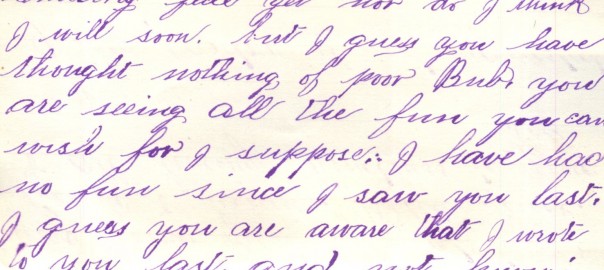 yet nor do I think
I will soon. but I guess you have
thought nothing of poor Bub, you
are seeing all the fun you can
wish for I suppose. I have had
no fun since I saw you last.
I guess you are aware that I wrote
to you last and not